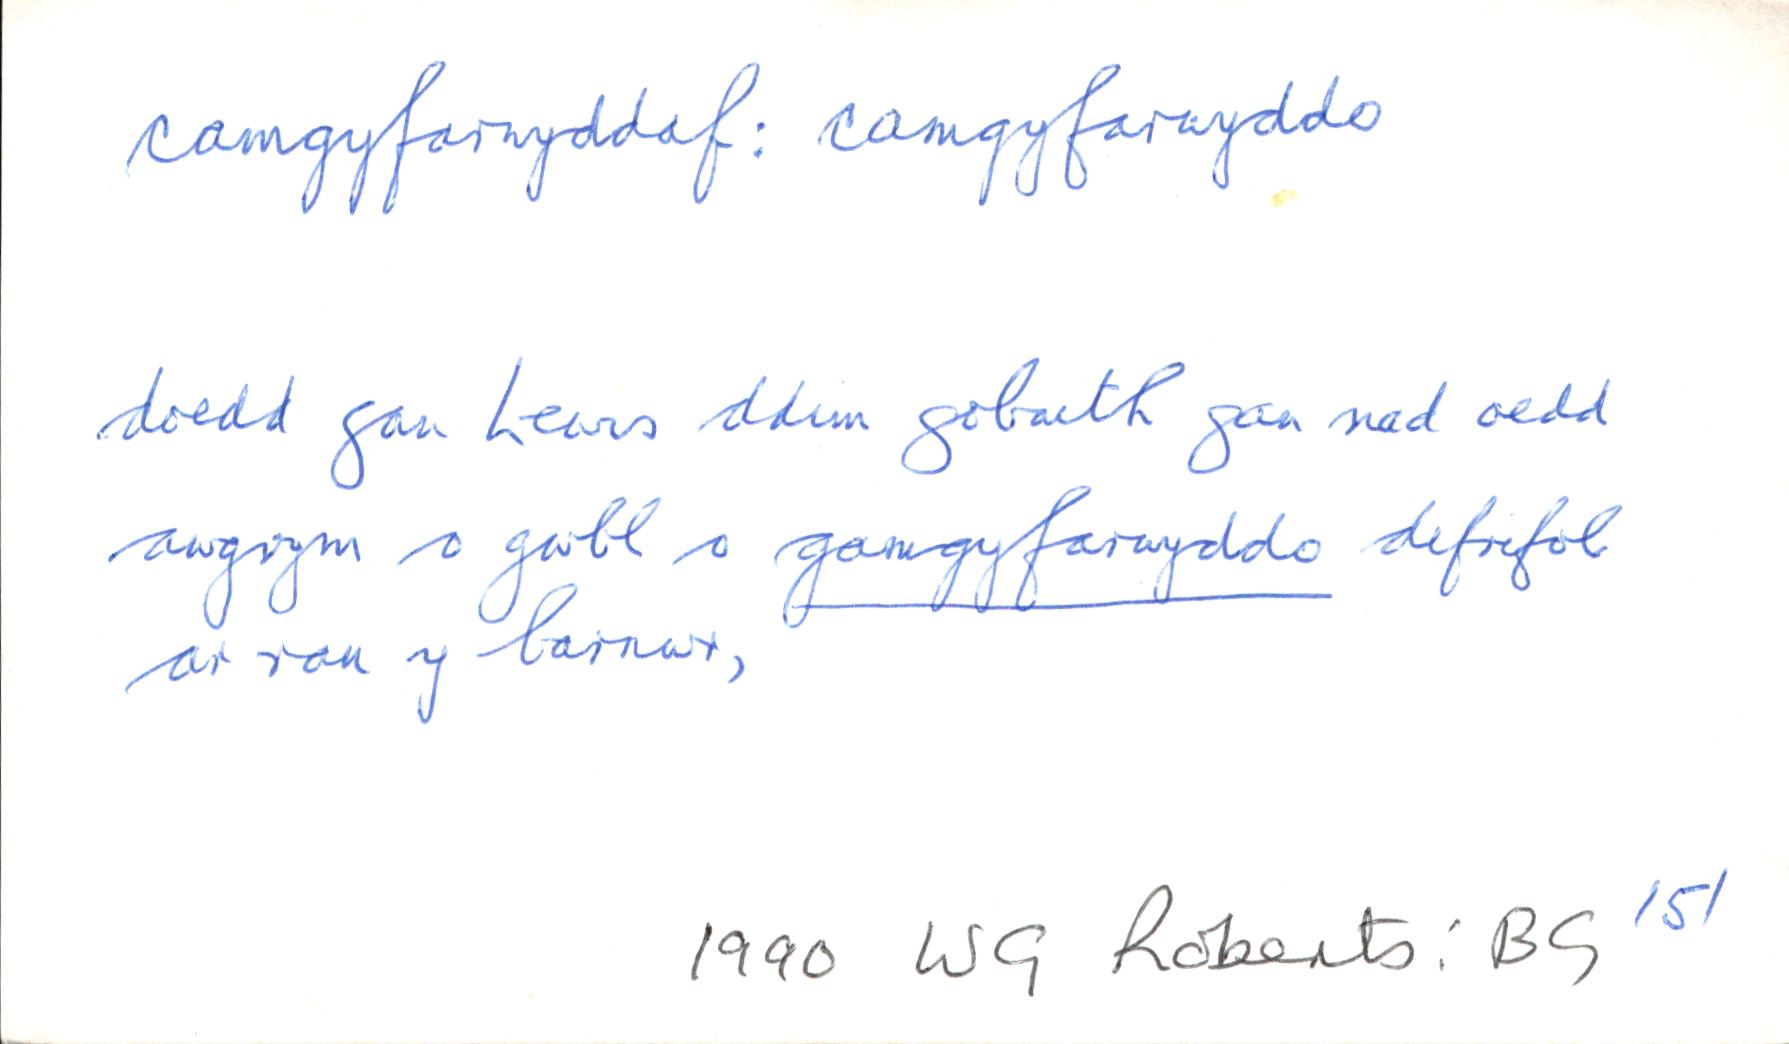 camgyfarwyddaf: camgyfarwyddo
doedd gan Lewis ddim gobaith gan nad oedd
awgrym o gwbl o gamgyfarwyddo difrifol
ar ran y barnwr,
1990 WG Roberts: BG 151